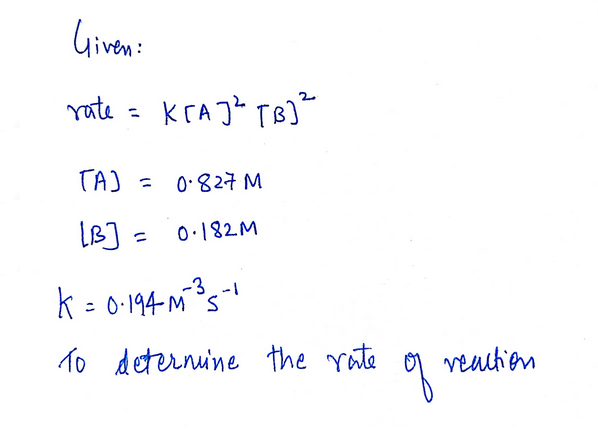 Given:
rate = K[A]² [B]²
[A] = 0.827 M
[B] = 0.182 M
k = 0.194 M⁻³ s⁻¹
To determine the rate of reaction